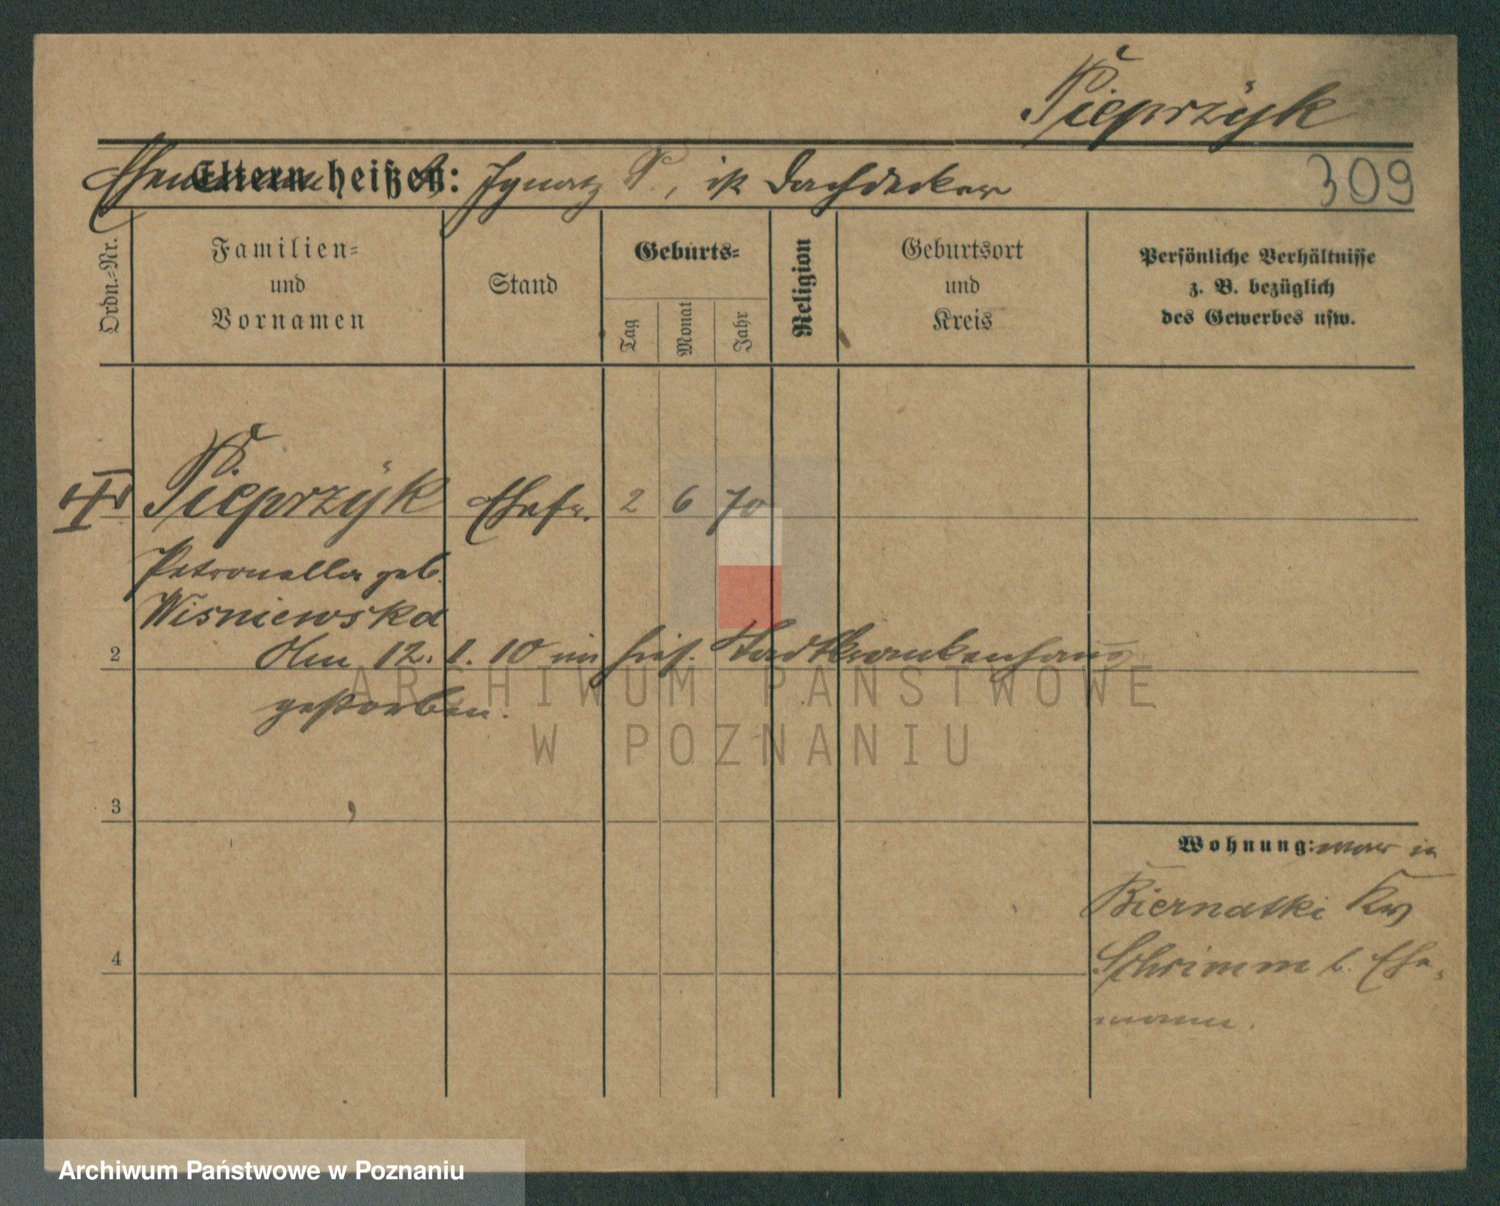 Pieprzyk
Ehemann Eltern heißen: Ignatz P., ist Dachdecker
309
Ordn.-Nr.
Familien- und Vornamen
Stand
Geburts-
Tag
Monat
Jahr
Religion
Geburtsort und Kreis
Persönliche Verhältnisse z. B. bezüglich des Gewerbes usw.
Pieprzyk Ehefr. 2 6 70
Petronella geb.
Wisniewska
2
Am 12. 1. 10 im hies. Stadtkrankenhaus
gestorben.
ARCHIWUM PAŃSTWOWE
W POZNANIU
3
Wohnung: war in
Biernatki Krs
4
Schrimm b. Ehe-
mann.
Archiwum Państwowe w Poznaniu